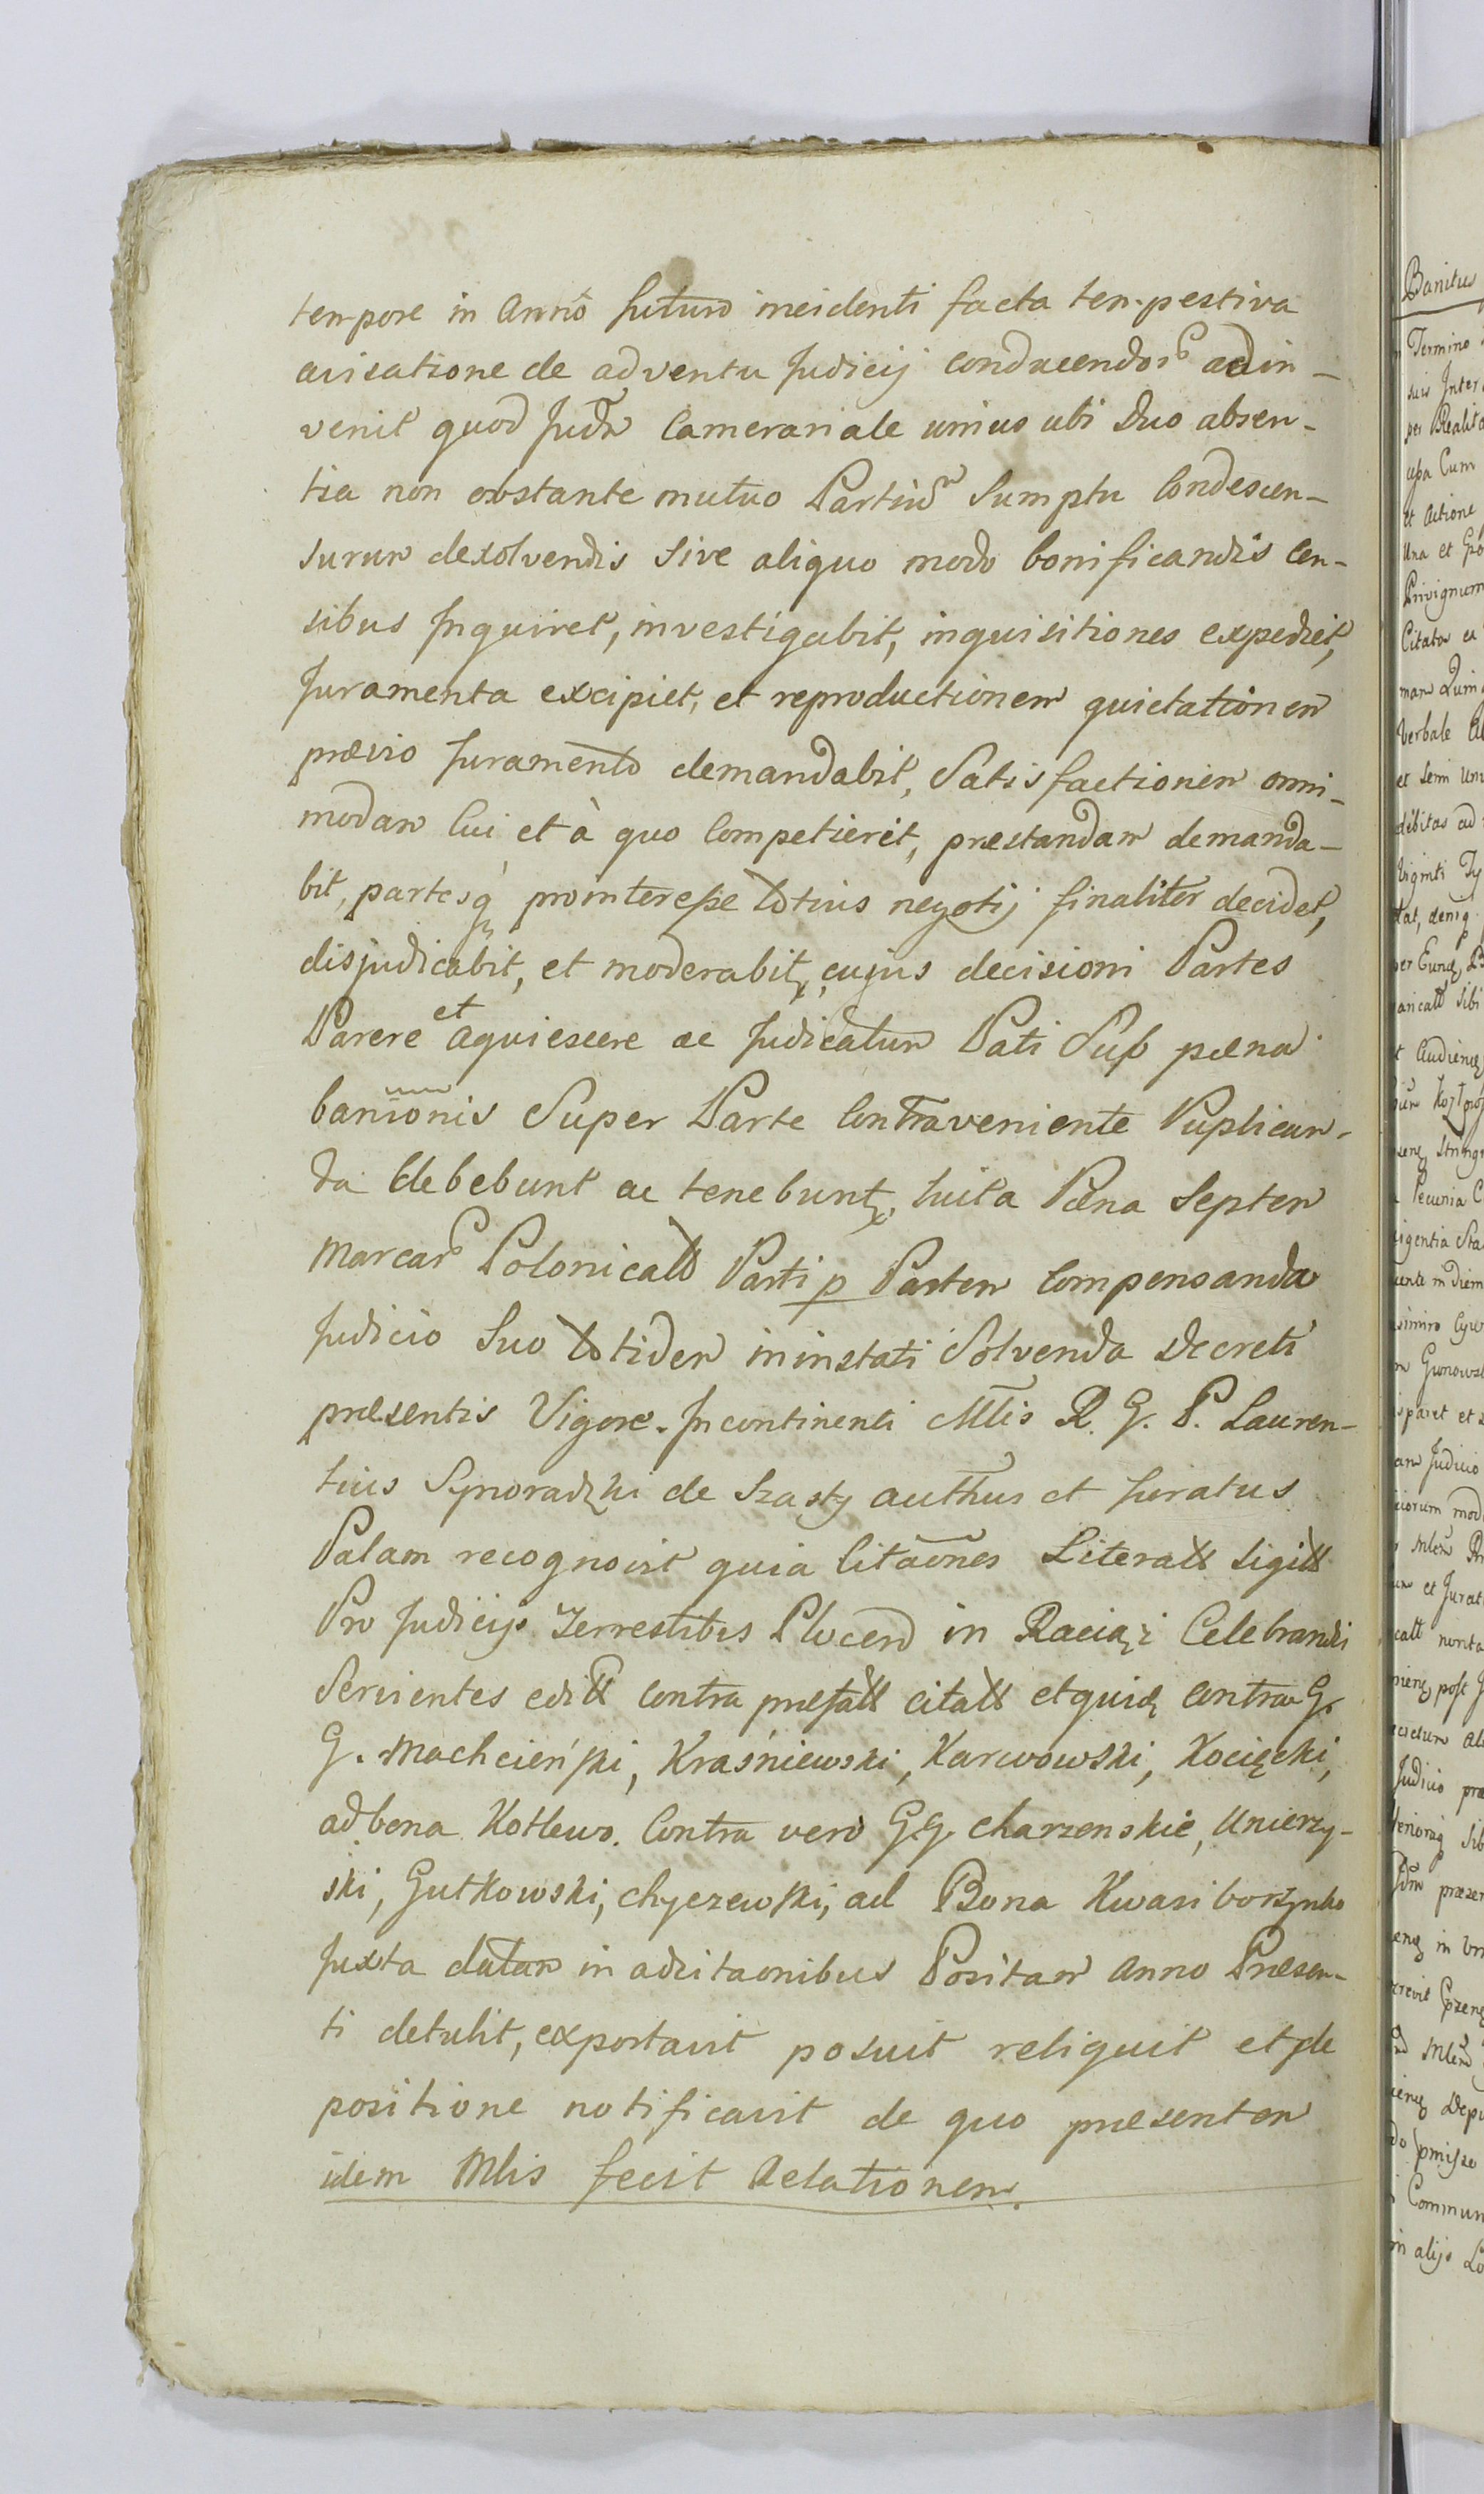 tempore in Anno futuro incidenti facta tempestiva
avisatione de adventu Judicij conducendor adin-
venit quod Judm Camerariale unius ubi Duo absen-
tia non obstante mutuo Partium Sumptu Condescen-
surum dexolvendis sive aliquo modo bonificandis Cen-
sibus Inquiret, investigabit, inquisitiones expediet,
Juramenta excipiet, et reproductionem quietationem
prævio Juramento demandabit, Satisfactionem omni-
modam Cui et à quo Competierit, præstandam demanda-
bit, partesq prointeresse totius negotij finaliter decidet,
disjudicabit, et moderabit, cujus decisioni Partes
Parere et aquiescere ac Judicatum Pati Sub pæna
banionis Super Parte Contraveniente Puplican-
da debebunt ac tenebunt, luita Pæna Septem
Marcar Polonicall Parti p Partem Compensanda
Judicio Suo totidem ininstati Solvenda Decreti
præsentis Vigore. Incontinenti Mlis R. G. P. Lauren-
tius Synoradzki de Szasty authus et Juratus
Palam recognovit quia Citaones Literall Sigill
Pro Judicijs Terrestibus Plocen in Raciąż Celebrandi
Servientes edill contra præfall citall etquid contra G.
G. Machcieński, Kraśniewski, Karwowski, Kocięcki,
ad bona Kotlewo. Contra vero G.G. Charzenskie, Unierzy-
ski, Gutkowski, Chyczewski, ad Bona Kwasiborzynko
Juxta datam in adcitaonibus Positam Anno Præsen-
ti detulit, exportavit posuit reliquit et de
positione notificavit de quo præsentem
idem Mlis fecit Relationem.
Banitus
Termino
suis Inter
per Realita
Cum
et Actione
Una et
Privignum
Citato
Verbale
et Semi
debitas ad
Viginti
tat, deniq
sibi
Judicio
et Jurat
post
Judicio præ
in
Commun
in alijs